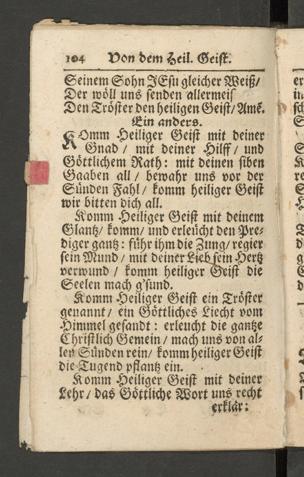 104 Von dem Heil. Geist.
Seinem Sohn JEsu gleicher Weiß/
Der wöll uns senden allermeist
Den Tröster den heiligen Geist/ Amẽ.
Ein anders.
KOmm Heiliger Geist mit deiner
Gnad/ mit deiner Hilff/ und
Göttlichem Rath: mit deinen siben
Gaaben all/ bewahr uns vor der
Sünden Fahl/ komm heiliger Geist
wir bitten dich all.
Komm Heiliger Geist mit deinem
Glantz/ komm/ und erleücht den Pre-
diger gantz: führ ihm die Zung/ regier
sein Mund/ mit deiner Lieb sein Hertz
verwund/ komm heiliger Geist die
Seelen mach g'sund.
Komm Heiliger Geist ein Tröster
genannt/ ein Göttliches Liecht vom
Himmel gesandt: erleucht die gantze
Christlich Gemein/ mach uns von al-
len Sünden rein/ komm heiliger Geist
die Tugend pflantz ein.
Komm Heiliger Geist mit deiner
Lehr/ das Göttliche Wort uns recht
erklär: